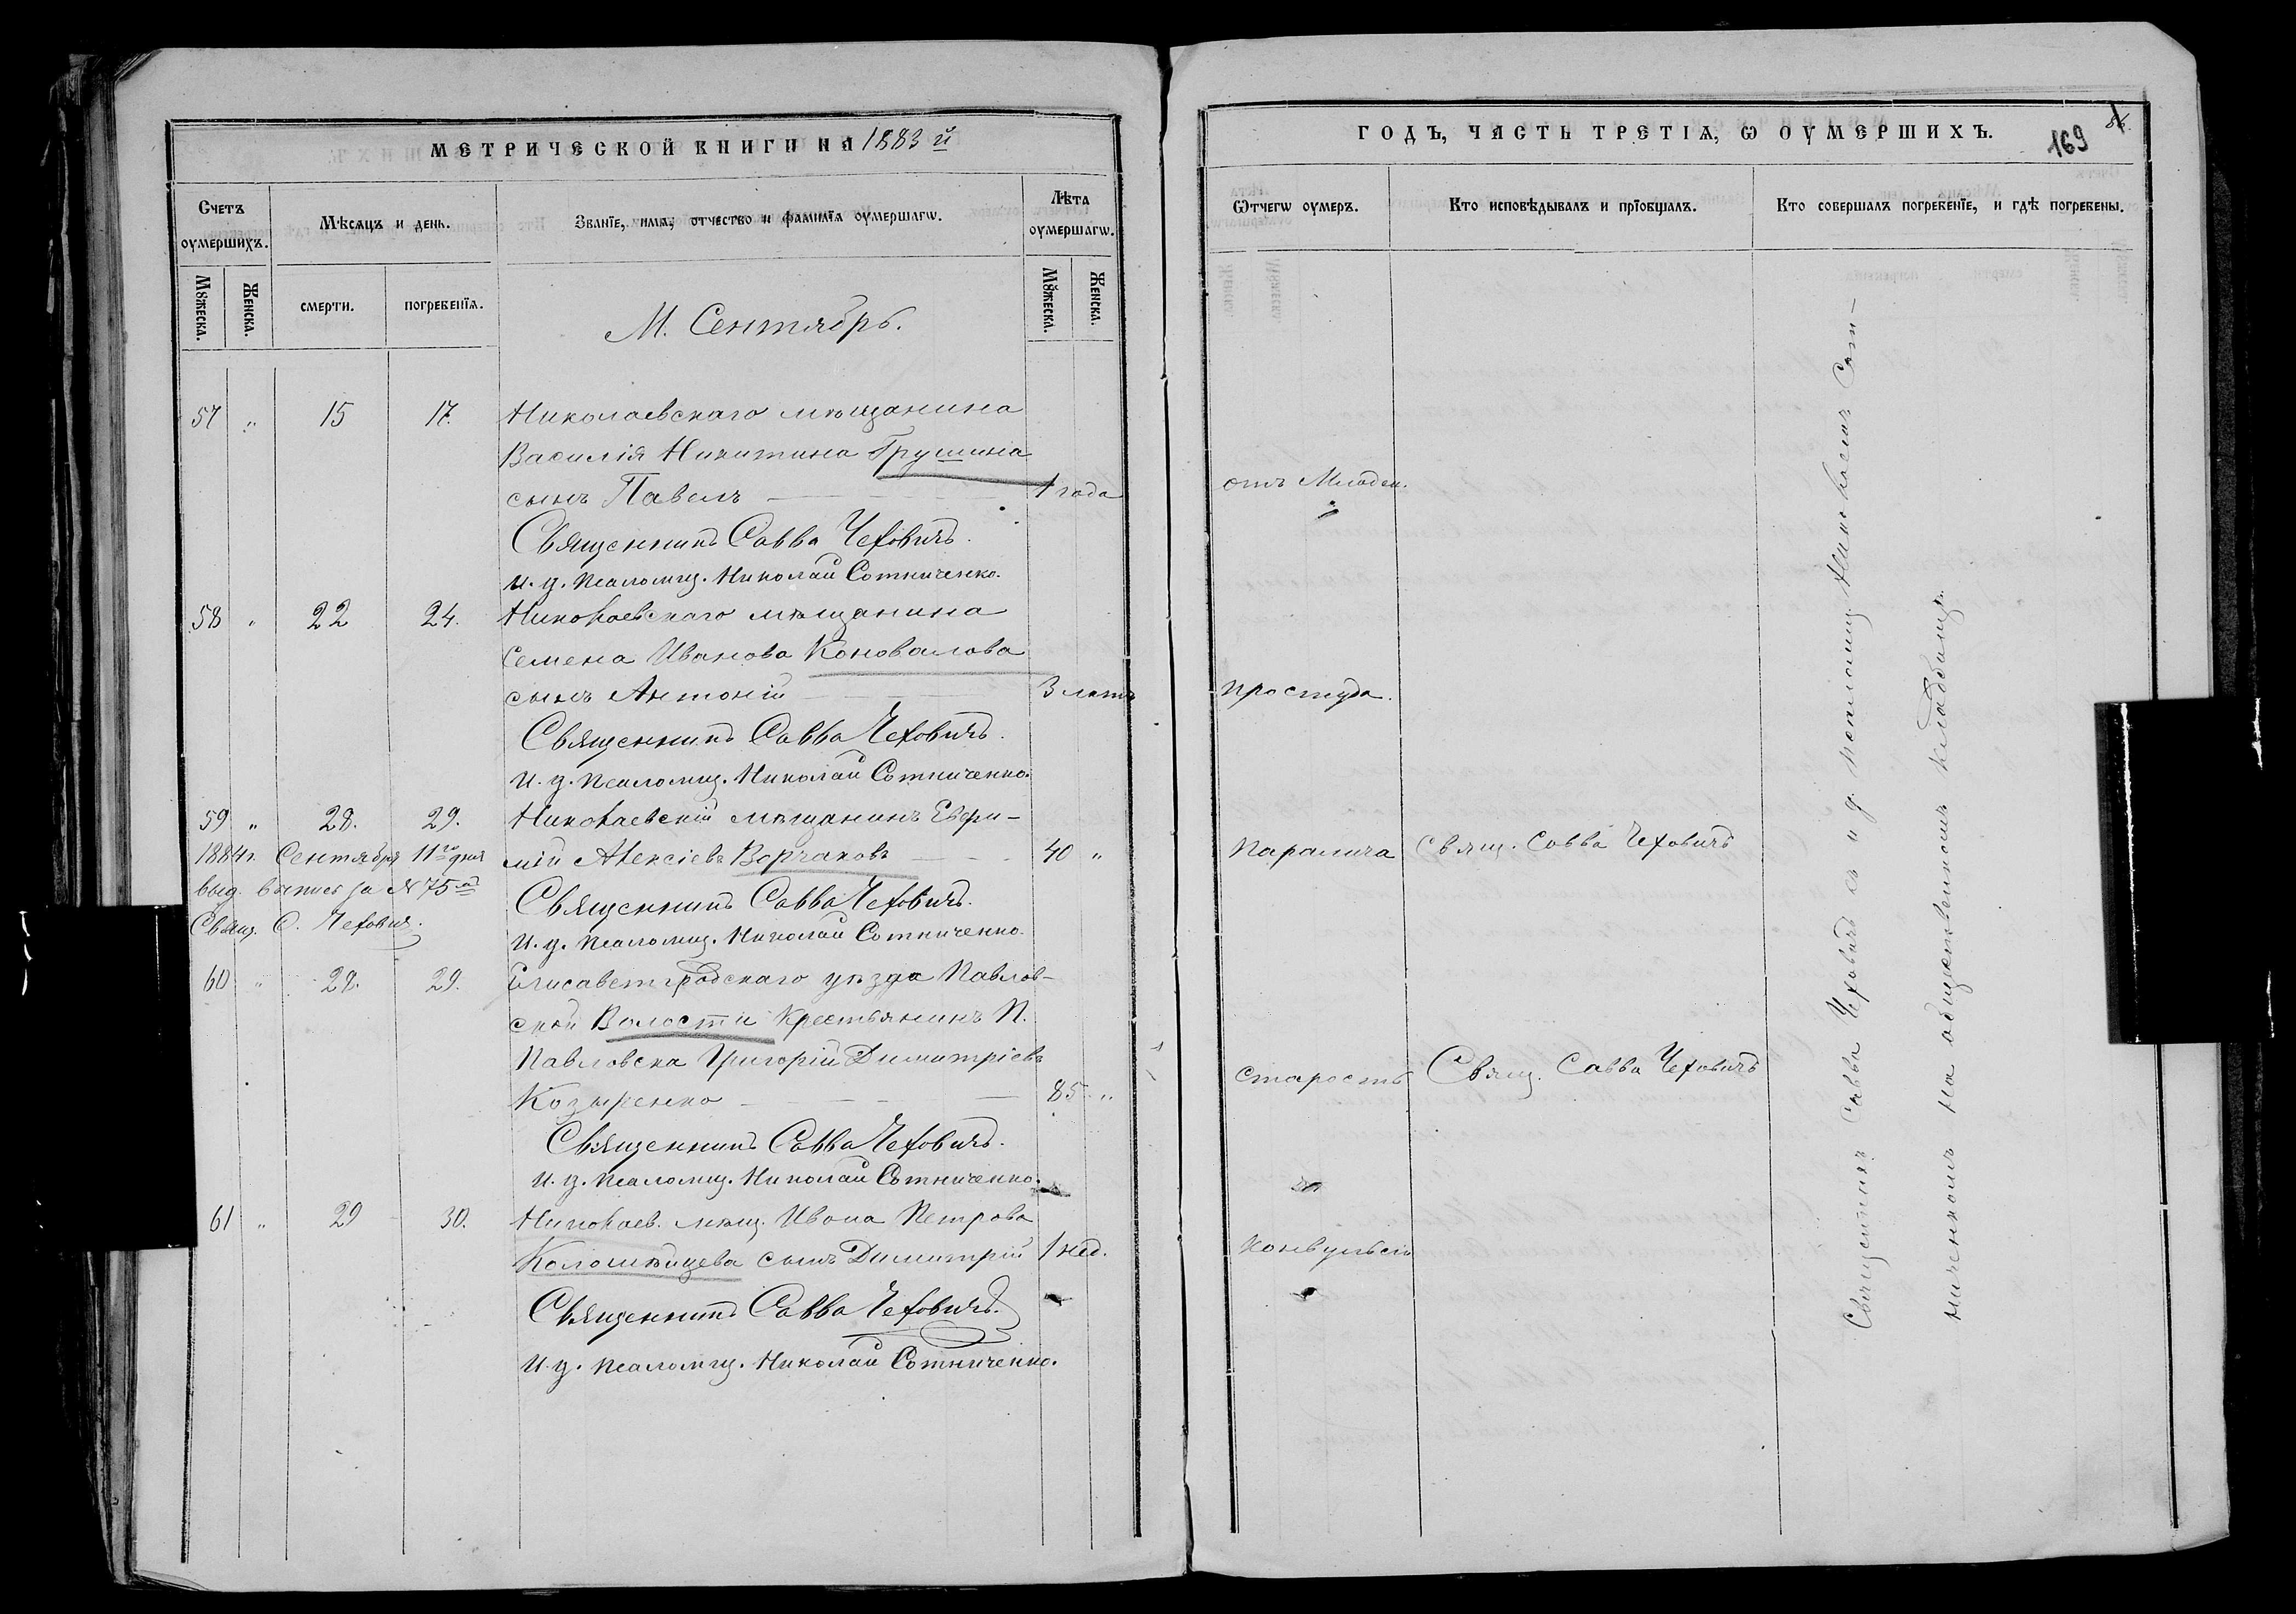 МЕТРИЧЕСКОЙ КНИГИ НА 1883 й
Счетъ оумершихъ.
Мѣсяцъ и день.
Званїе, имя, отчество и фамилїя оумершагѡ.
Лѣта оумершагѡ.
Мꙋжеска.
Женска.
смерти.
погребенїя.
Мꙋжеска.
Женска.
М. Сентябрь.
57 " 15 17. Николаевскаго мѣщанина
Василія Никитина Грушина
сынъ Павелъ — 1 года
Священникъ Савва Чеховичъ.
И. д. псаломщ. Николай Сотниченко.
58 " 22 24. Николаевскаго мѣщанина
Семена Иванова Коновалова
сынъ Антоній — 3 летъ
Священникъ Савва Чеховичъ.
И. д. псаломщ. Николай Сотниченко.
59 " 28. 29. Николаевскій мѣщанинъ Евфи-
мій Алексіевъ Ворчаковъ — 40 "
1884 г. Сентября 11го дня
выд. выпись за № 75мъ
Свящ. С. Чехович.
Священникъ Савва Чеховичъ.
И. д. псаломщ. Николай Сотниченко.
60 " 28. 29. Елисаветградскаго уѣзда Павлов-
ской Волости Крестьянинъ П.
Павловска Григорій Димитріевъ
Козыренко — 85 "
Священникъ Савва Чеховичъ.
И. д. псаломщ. Николай Сотниченко.
61 " 29 30. Николаев. мѣщ. Ивана Петрова
Коломѣйцева сынъ Димитрій 1 нед.
Священникъ Савва Чеховичъ.
И. д. псаломщ. Николай Сотниченко.
ГОДЪ, ЧАСТЬ ТРЕТІЯ, Ѡ ОУМЕРШИХЪ.
169
86.
Ѿчегѡ оумеръ.
Кто исповѣдывалъ и прїобщалъ.
Кто совершалъ погребенїе, и гдѣ погребены.
отъ Младен.
простуда.
паралича Свящ. Савва Чеховичъ
старость Свящ. Савва Чеховичъ
конвульсіи
Священникъ Савва Чеховичъ съ и. д. псаломщ. Николаемъ Сот-
ниченкомъ на общественномъ кладбищѣ.